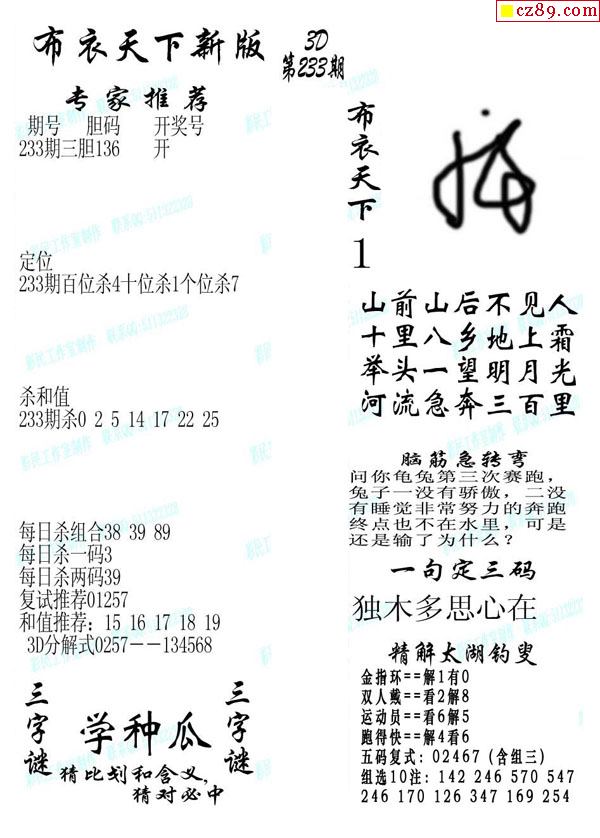 cz89.com
布衣天下新版
3D
第233期
专家推荐
期号 胆码 开奖号
233期三胆136 开
定位
233期百位杀4十位杀1个位杀7
杀和值
233期杀0 2 5 14 17 22 25
每日杀组合38 39 89
每日杀一码3
每日杀两码39
复试推荐01257
和值推荐：15 16 17 18 19
3D分解式0257－－134568
三字谜
学种瓜
三字谜
猜比划和含义，
猜对必中
布衣天下
1
山前山后不见人
十里八乡地上霜
举头一望明月光
河流急奔三百里
脑筋急转弯
问你龟兔第三次赛跑，
兔子一没有骄傲，二没
有睡觉非常努力的奔跑
终点也不在水里，可是
还是输了为什么？
一句定三码
独木多思心在
精解太湖钓叟
金指环==解1有0
双人戴==看2解8
运动员==看6解5
跑得快==解4看6
五码复式：02467（含组三）
组选10注：142 246 570 547
246 170 126 347 169 254
彩民工作室制作 联系QQ:511322320